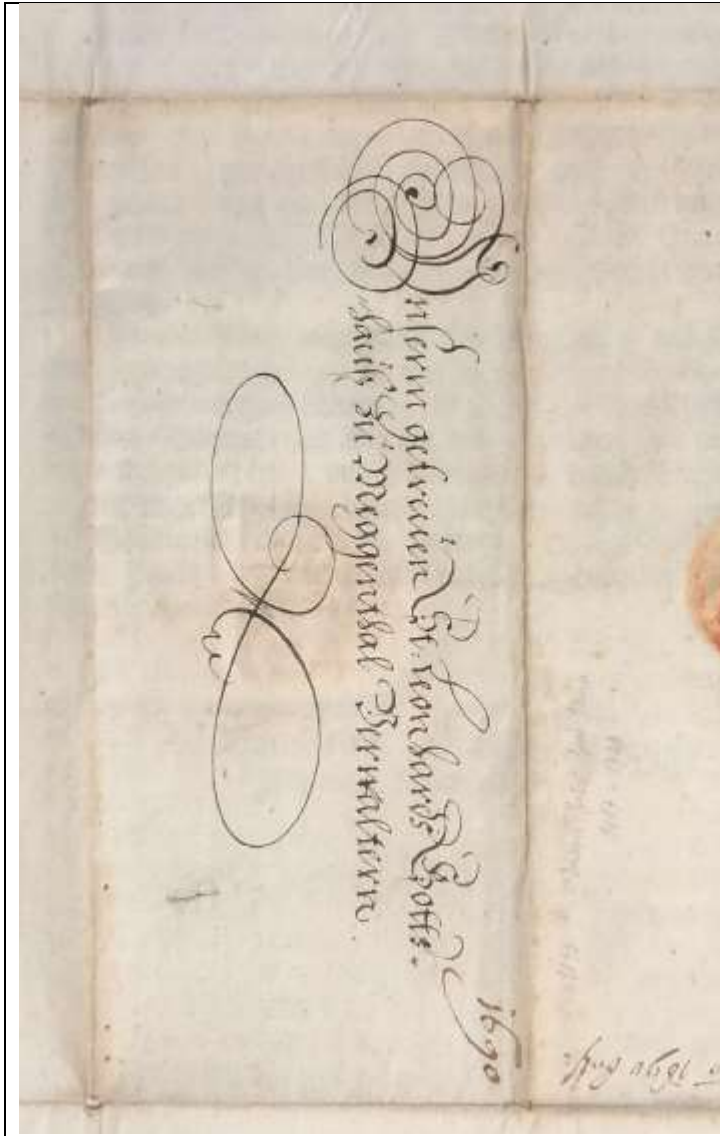 Unserm getreuen St: Leonhards Gotts-
hauß zu Meggenthal Verwaltern.
1690